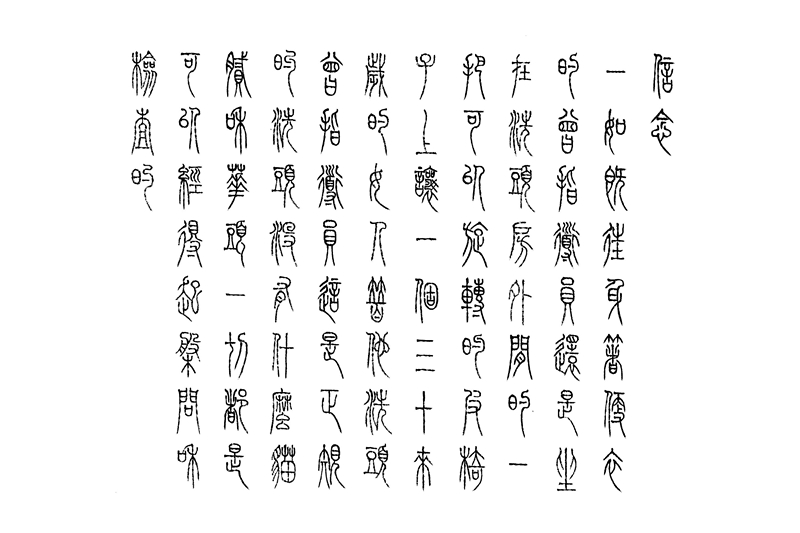 信念
一如既往身著便衣
的曾指導員還是坐
在洗頭房外間的一
把可以旋轉的皮椅
子上讓一個三十來
歲的女人替他洗頭
曾指導員這是正規
的洗頭沒有什麼貓
膩和華頭一切都是
可以經得起盤問和
檢查的